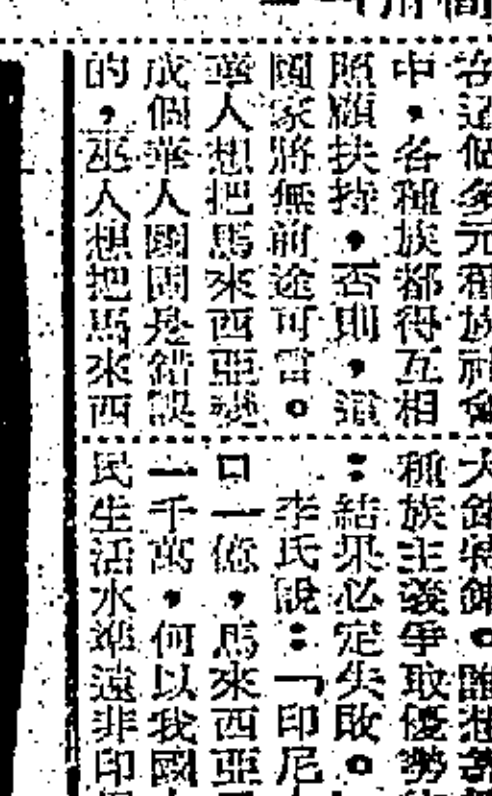 在這個多元種族社會
中，各種族都得互相
照顧扶持，否則，這
國家將無前途可言。
華人想把馬來西亞變
成個華人國固是錯誤
的，巫人想把馬來西
種族主義爭取優勢
：結果必定失敗。
李氏說：「印尼
口一億，馬來西亞
一千萬，何以我國
民生活水準遠非印